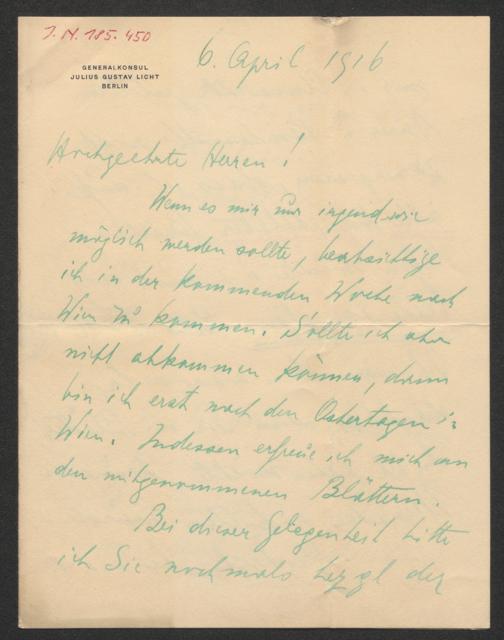 J. N. 185.450
6. April 1916
GENERALKONSUL
JULIUS GUSTAV LICHT
BERLIN
Hochgeehrte Herren!
Wenn es mir nur irgendwie
möglich werden sollte, beabsichtige
ich in der kommenden Woche nach
Wien zu kommen. Sollte ich aber
nicht abkommen können, dann
bin ich erst nach den Ostertagen in
Wien. Indessen erfreue ich mich an
den mitgenommenen Blättern.
Bei dieser Gelegenheit bitte
ich Sie nochmals bezgl der